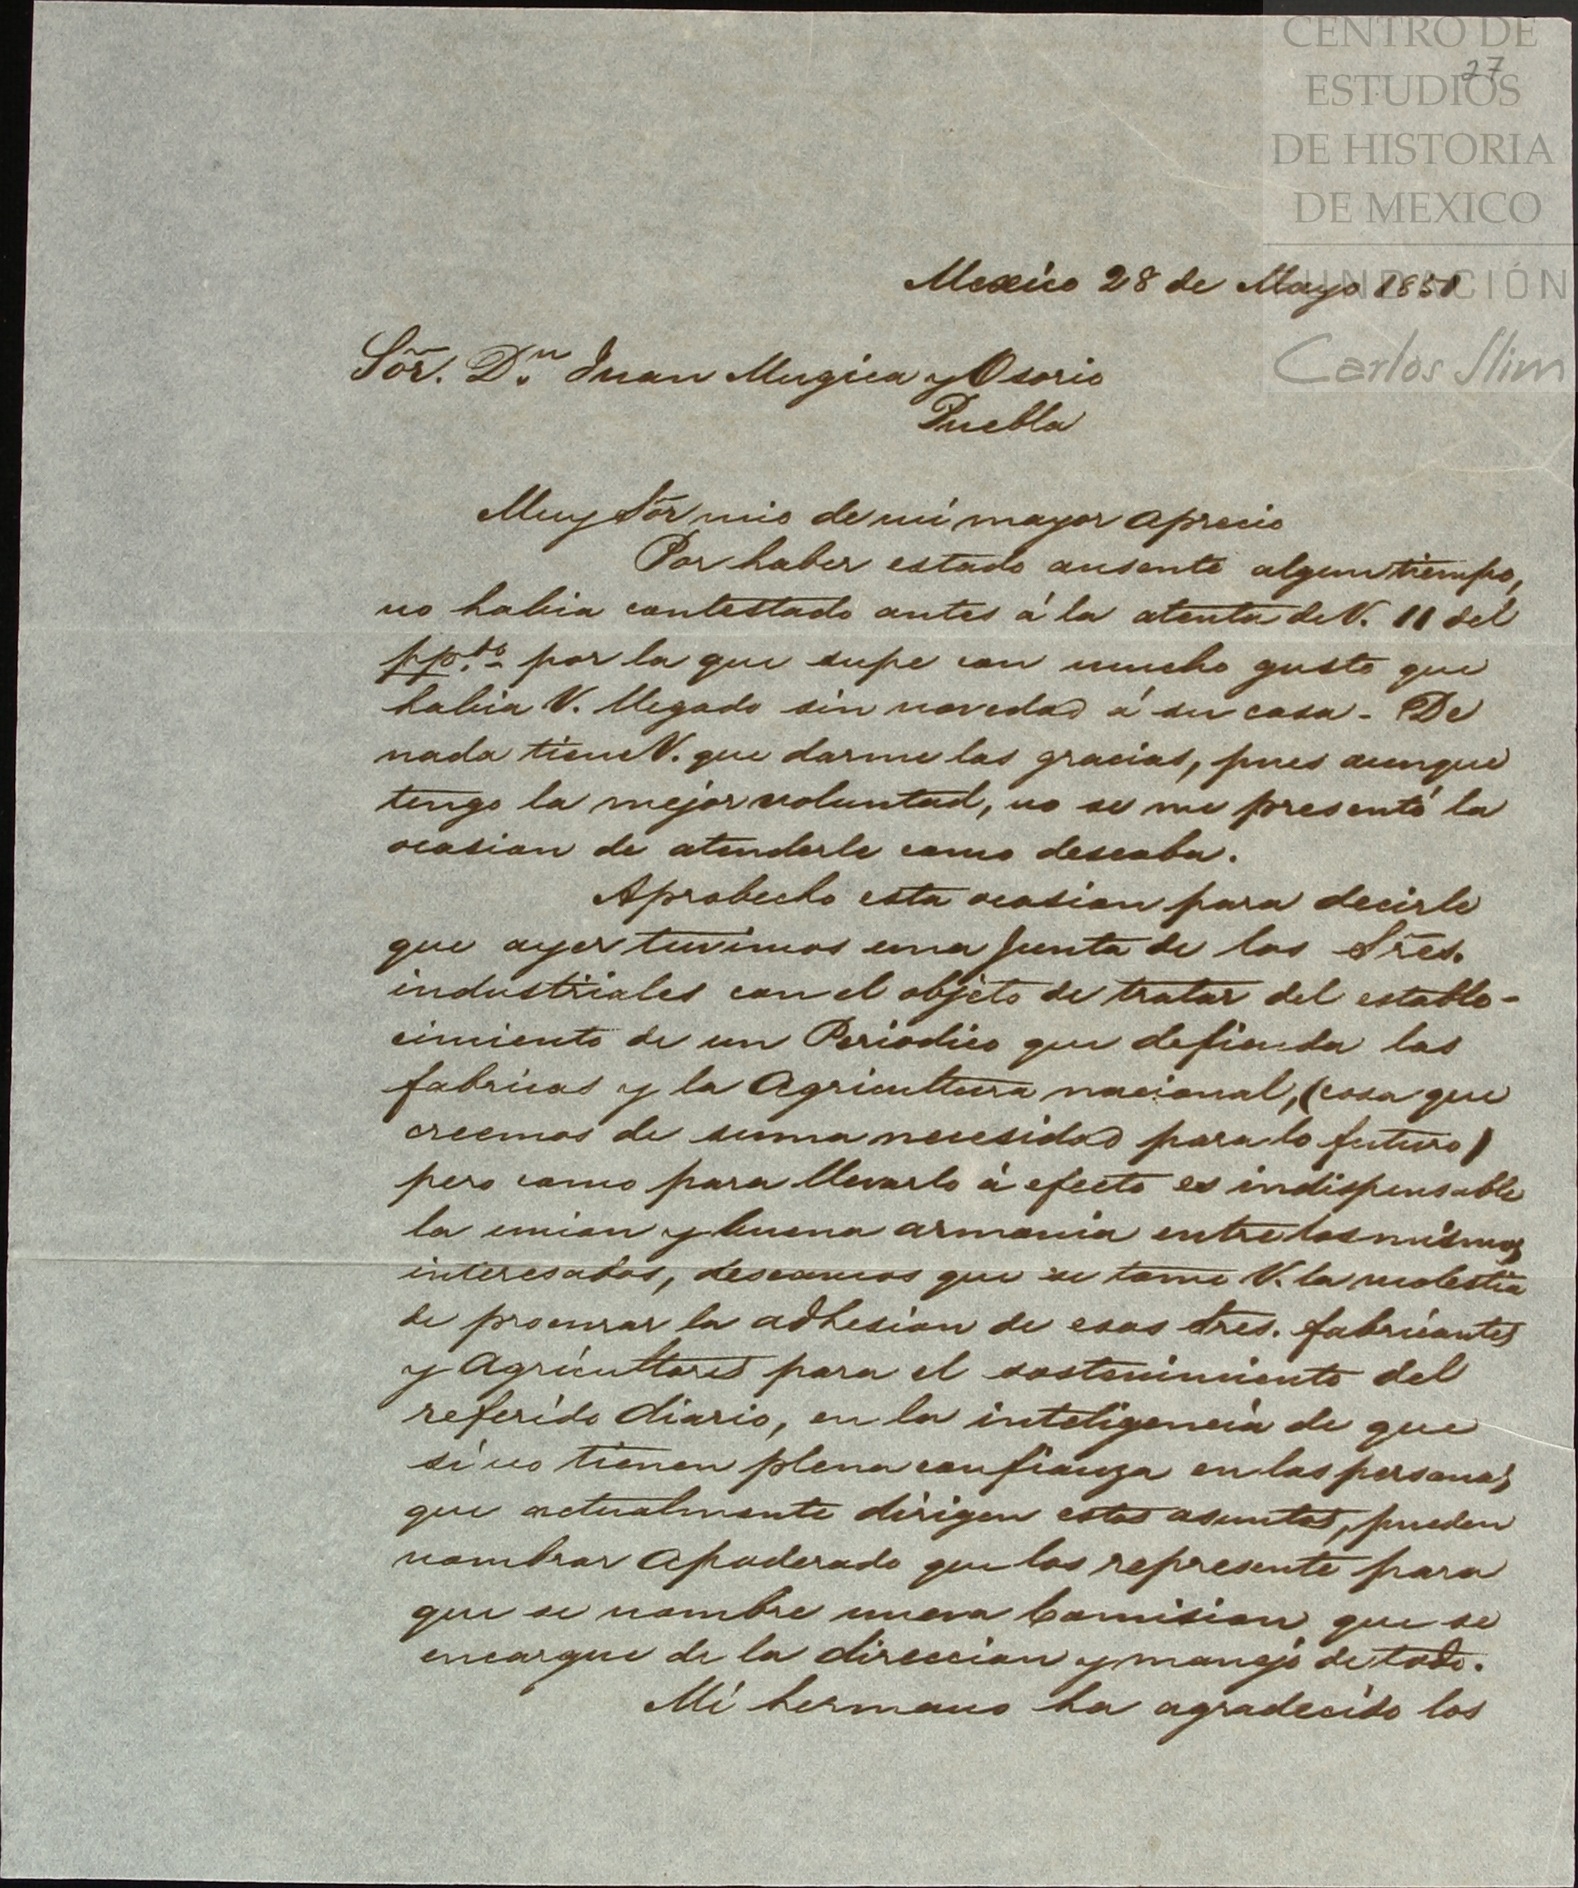 CENTRO DE
ESTUDIOS
DE HISTORIA
DE MEXICO
FUNDACIÓN
Carlos Slim
27
Mexico 28 de Mayo 1851
Sõr. D.n Juan Mugica y Osorio
Puebla
Muy Sõr mio de mi mayor aprecio
Por haber estado ausente algun tiempo,
no habia contestado antes á la atenta de V. 11 del
pp.do por la que supe con mucho gusto que
habia V. llegado sin novedad á su casa - De
nada tiene V. que darme las gracias, pues aunque
tengo la mejor voluntad, no se me presentó la
ocasion de atenderle como deseaba.
Aprobecho esta ocasion para decirle
que ayer tuvimos una Junta de los Sres.
industriales con el objeto de tratar del estable-
cimiento de un Periodico que defienda las
fabricas y la Agricultura nacional, (cosa que
creemos de suma necesidad para lo futuro)
pero como para llevarlo á efecto es indispensable
la union y buena armonia entre los mismos
interesados, deseamos que se tome V. la molestia
de procurar la adhesion de esos Sres. fabricantes
y Agricultores para el sostenimiento del
referido diario, en la inteligencia de que
si no tienen plena confianza en las personas
que actualmente dirigen estos asuntos, pueden
nombrar apoderado que los represente para
que se nombre nueva Comision que se
encargue de la direccion y manejo de todo.
Mi hermano ha agradecido los